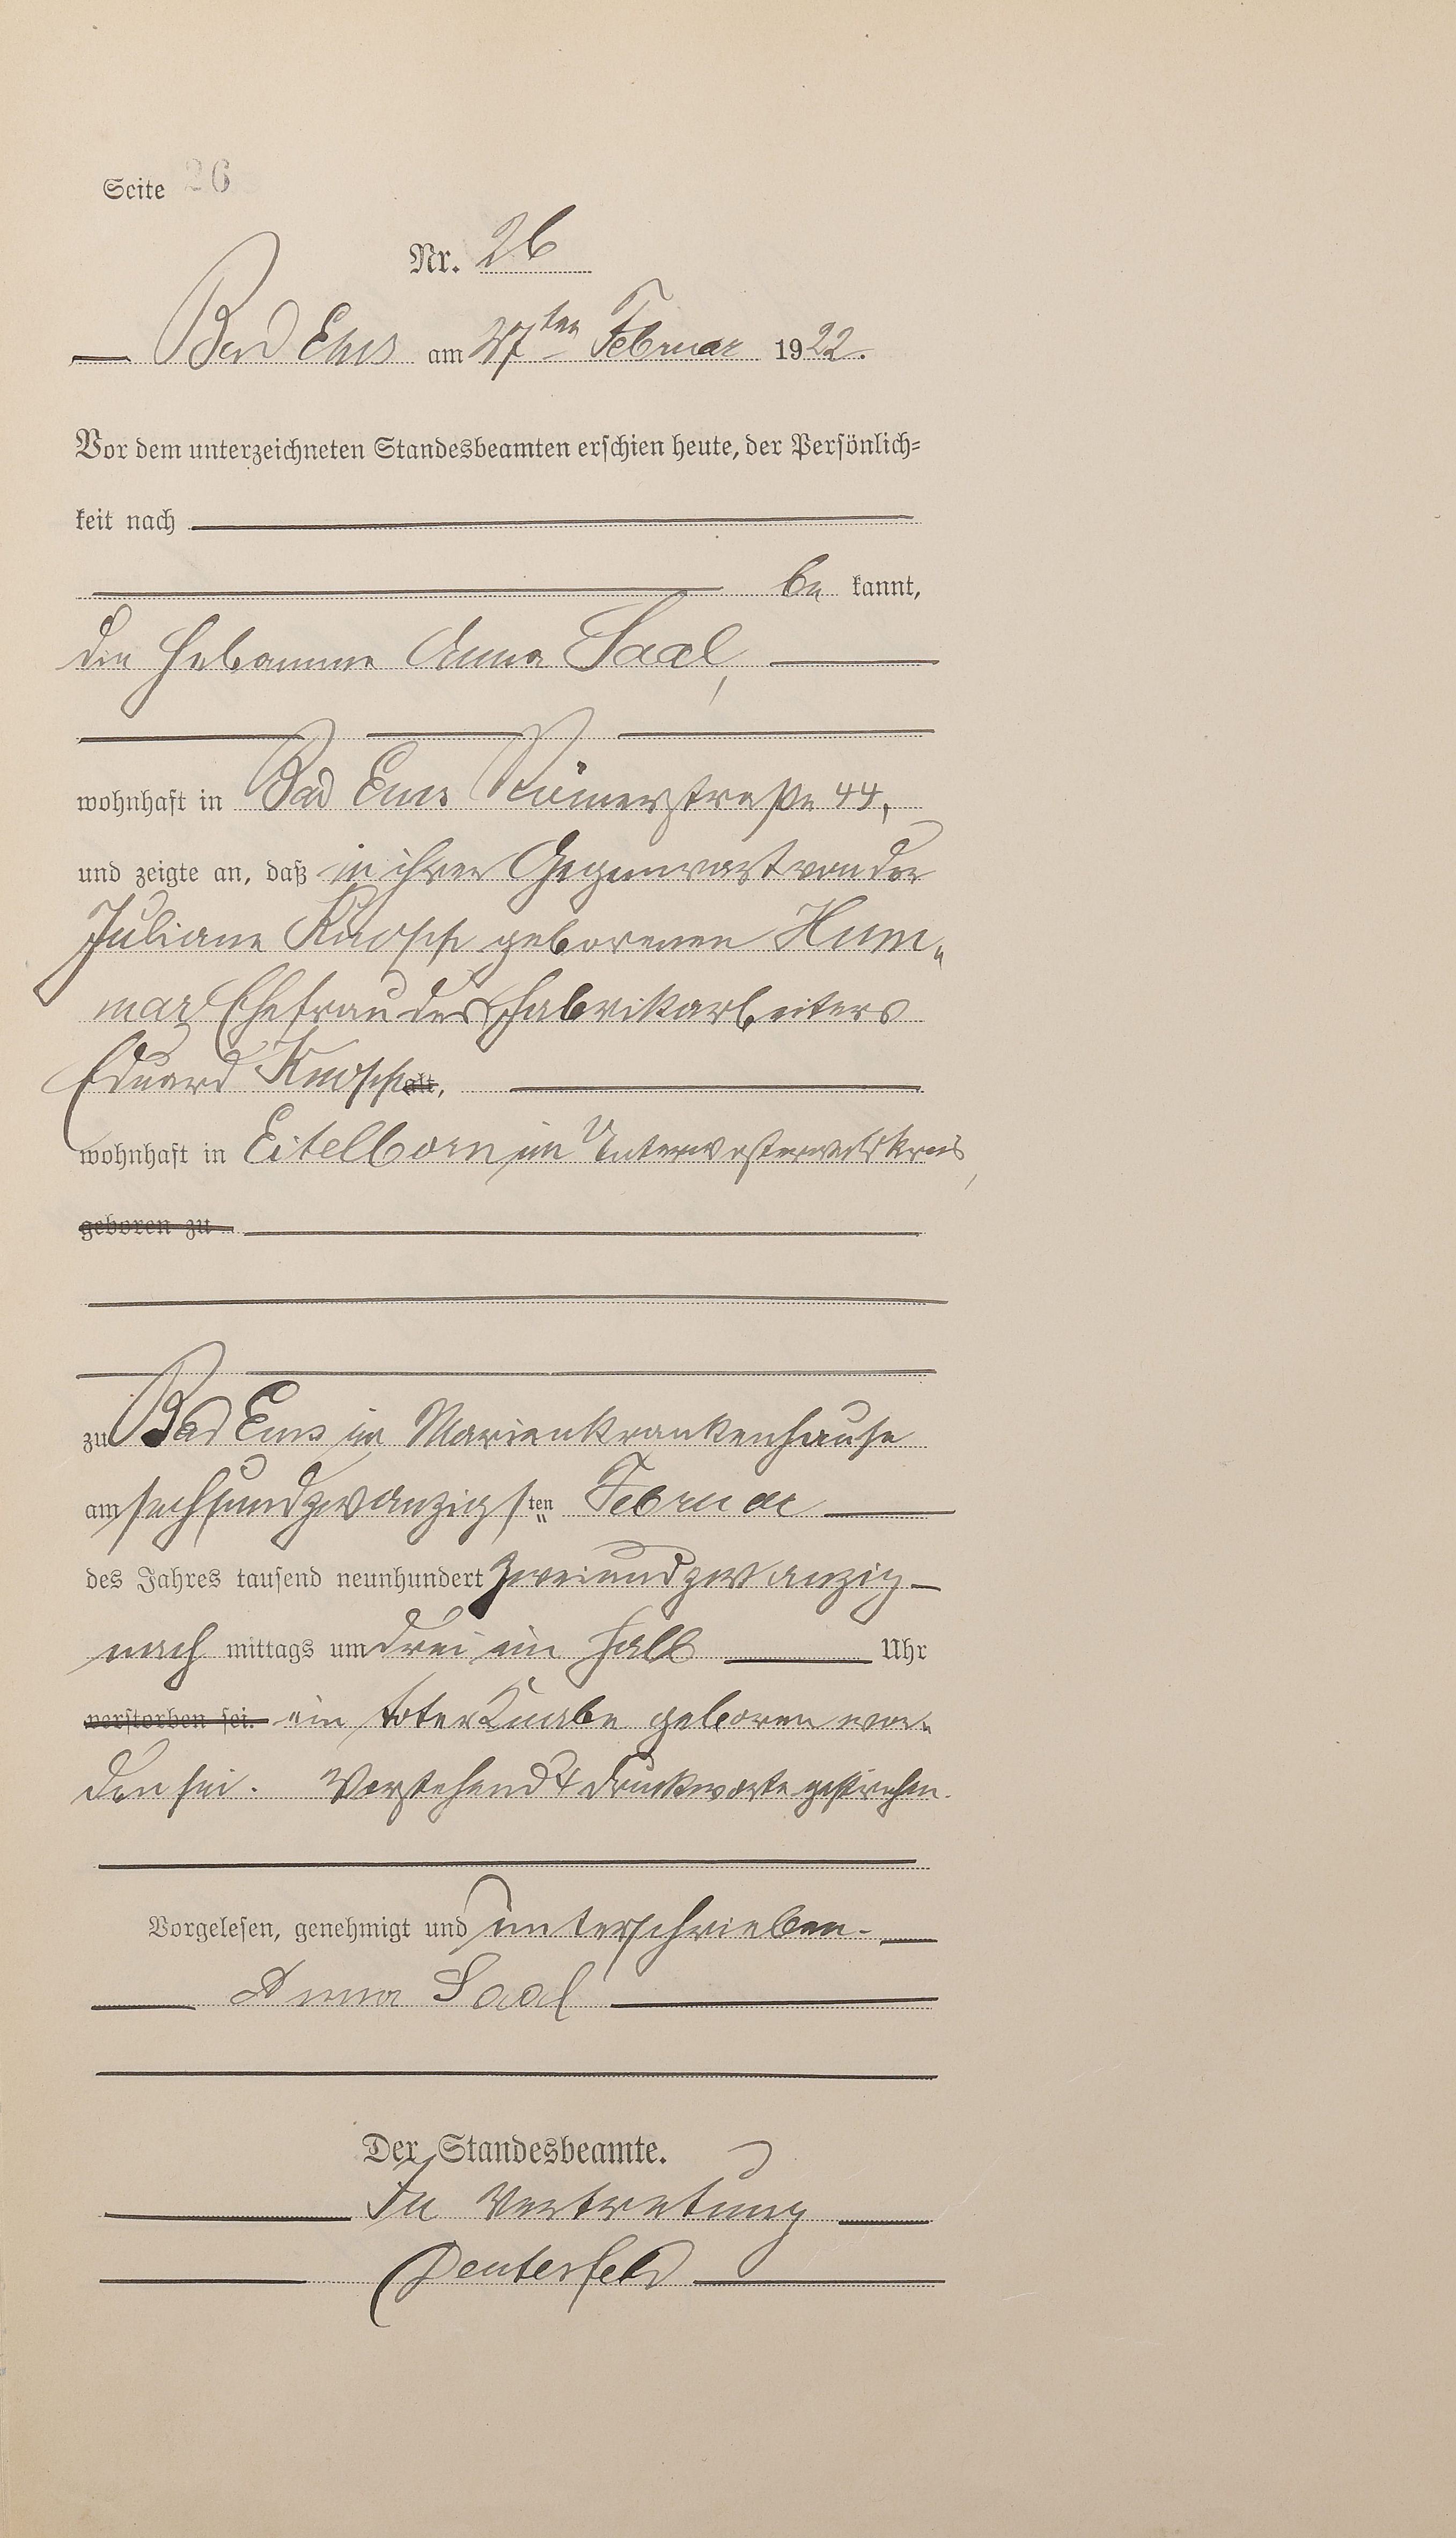 Seite 26
Nr. 26
Bad Ems am 27ten Februar 1922.
Vor dem unterzeichneten Standesbeamten erschien heute, der Persönlich-
keit nach
be kannt,
die Hebamme Anna Saal,
wohnhaft in Bad Ems Römerstraße 44,
und zeigte an, daß in ihrer Gegenwart von der
Juliane Knopp geborenen Hum-
mar Ehefrau des Fabrikarbeiters
Eduard Knopp alt,
wohnhaft in Eitelborn im Unterwesterwaldkreis,
geboren zu
zu Bad Ems im Marienkrankenhause
am sechsundzwanzigsten Februar
des Jahres tausend neunhundert zweiundzwanzig
nach mittags um drei ein halb Uhr
verstorben sei. ein toter Knabe geboren wor-
den sei. Vorstehend 4 Druckworte gestrichen.
Vorgelesen, genehmigt und unterschrieben.
Anna Saal
Der Standesbeamte.
In Vertretung